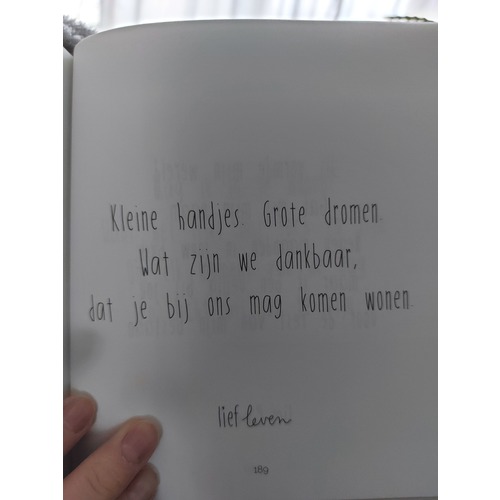 Kleine handjes. Grote dromen.
Wat zijn we dankbaar,
dat je bij ons mag komen wonen.
lief leven
189